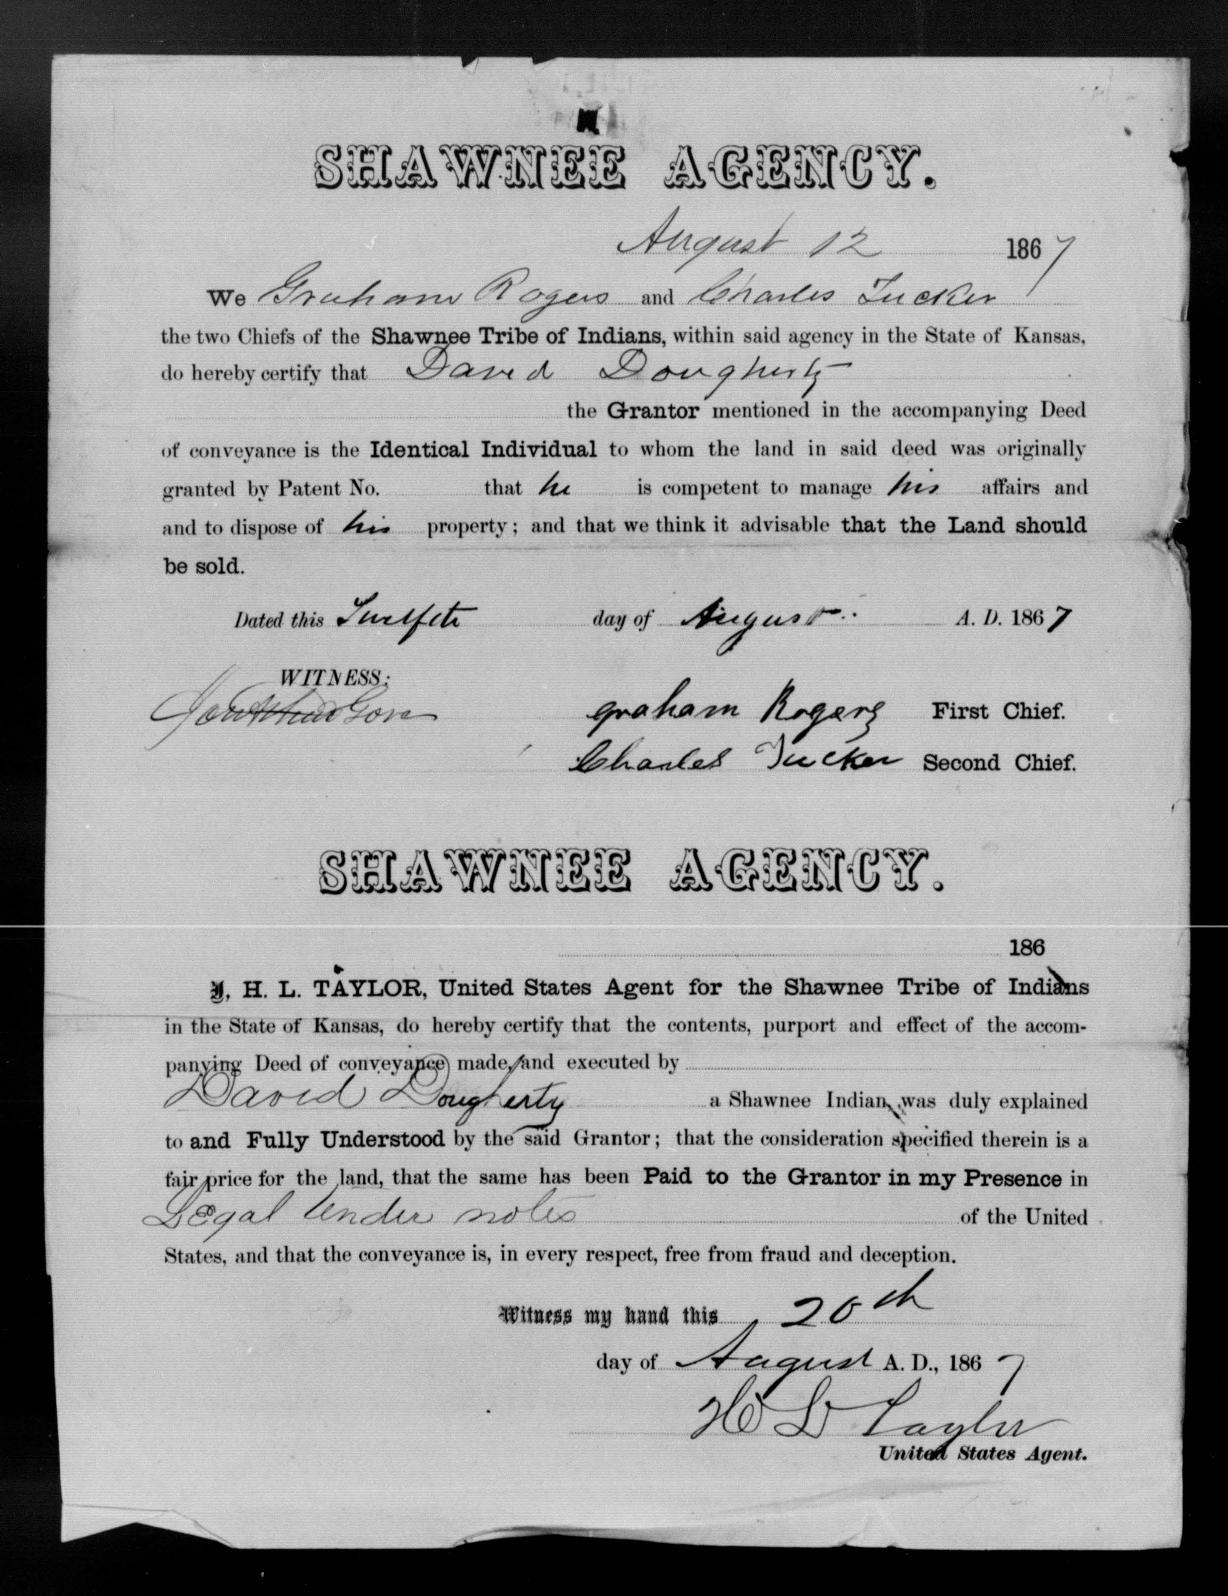 SHAWNEE AGENCY.
August 12 1867
We Graham Rogers and Charles Tucker
the two Chiefs of the Shawnee Tribe of Indians, within said agency in the State of Kansas,
do hereby certify that David Dougherty
the Grantor mentioned in the accompanying Deed
of conveyance is the Identical Individual to whom the land in said deed was originally
granted by Patent No. that he is competent to manage his affairs and
and to dispose of his property; and that we think it advisable that the Land should
be sold.
Dated this Twelfth day of August A. D. 1867
WITNESS:
Gore Graham Rogers First Chief.
Charles Tucker Second Chief.
SHAWNEE AGENCY.
186
I, H. L. TAYLOR, United States Agent for the Shawnee Tribe of Indians
in the State of Kansas, do hereby certify that the contents, purport and effect of the accom-
panying Deed of conveyance made, and executed by
David Dougherty a Shawnee Indian, was duly explained
to and Fully Understood by the said Grantor; that the consideration specified therein is a
fair price for the land, that the same has been Paid to the Grantor in my Presence in
Legal tender notes of the United
States, and that the conveyance is, in every respect, free from fraud and deception.
Witness my hand this 20th
day of August A. D., 1867
H L Taylor
United States Agent.